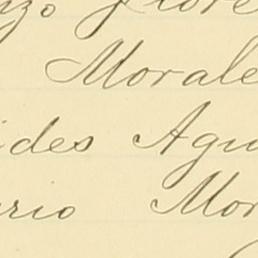 nzo Flore
Morale
ides Agu
rio Mor